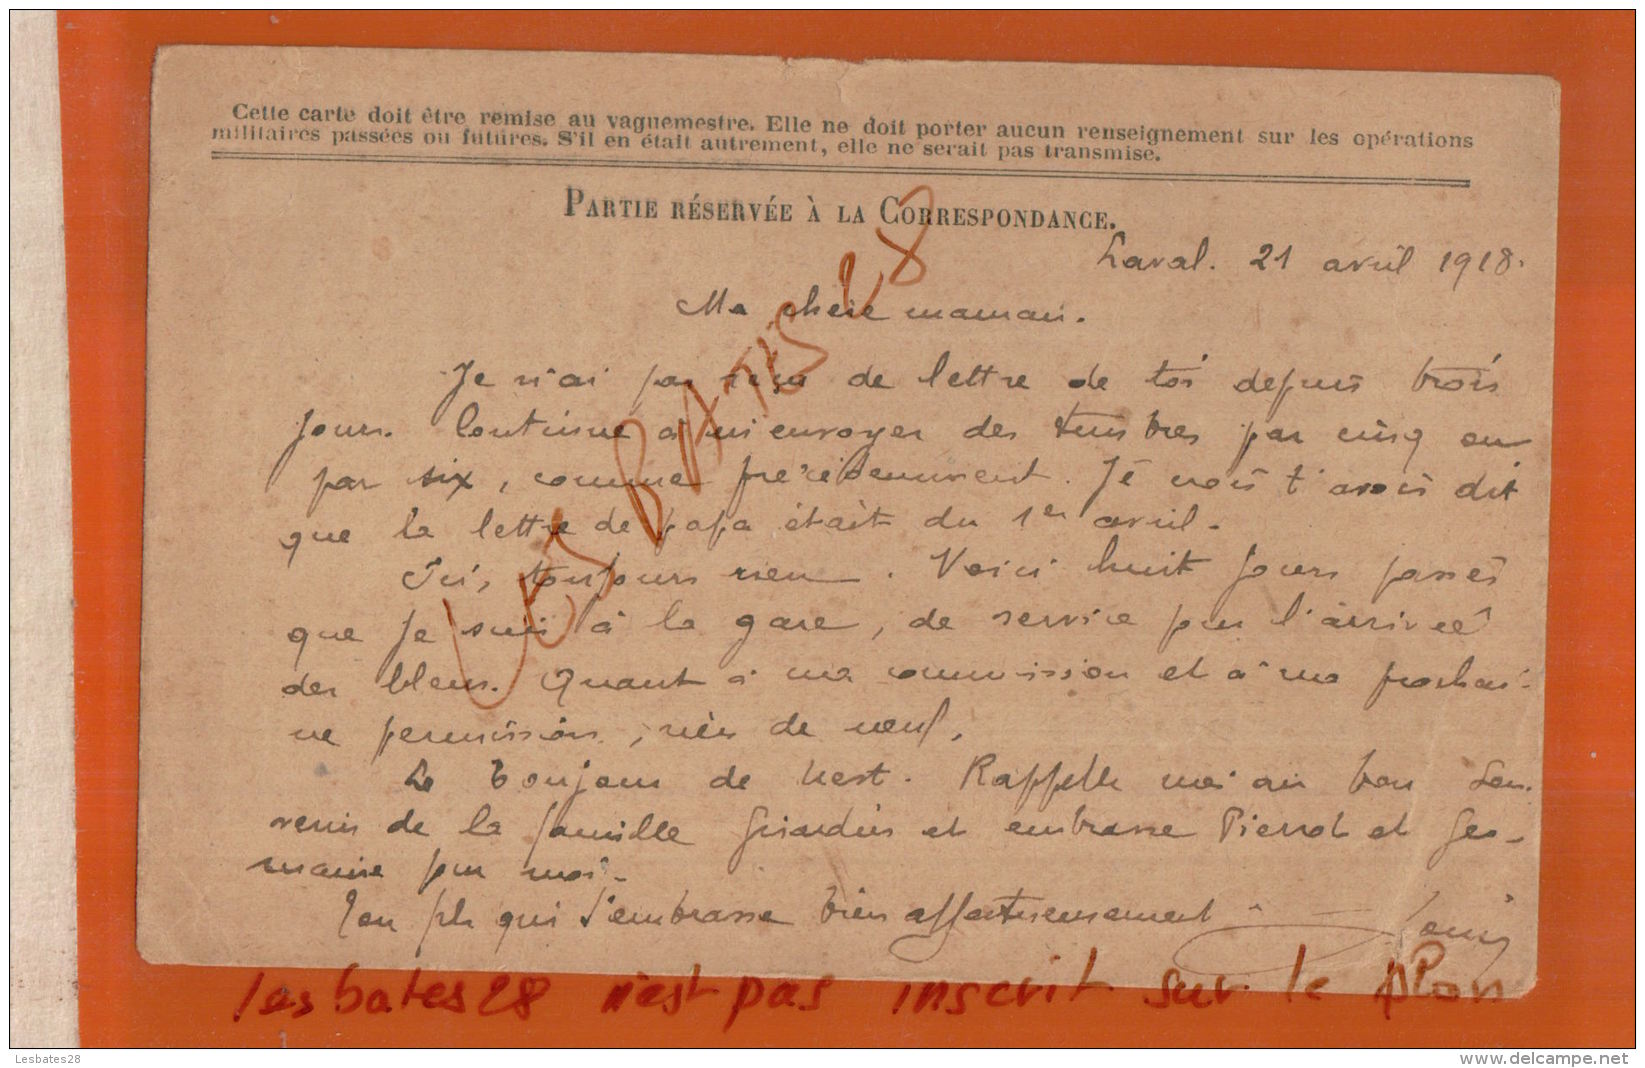 Cette carte doit être remise au vaguemestre. Elle ne doit porter aucun renseignement sur les opérations
militaires passées ou futures. S'il en était autrement, elle ne serait pas transmise.
PARTIE RÉSERVÉE À LA CORRESPONDANCE.
Laval. 21 avril 1918.
Ma chère maman.
Je n'ai pas reçu de lettre de toi depuis trois
jours. Continue à m'envoyer des timbres par cinq ou
par six, comme précédemment. Je crois t'avoir dit
que la lettre de papa était du 1er avril.
Ici, toujours rien. Voici huit jours passés
que je suis à la gare, de service pour l'arrivée
des bleus. Quant à ma commission et à ma prochai-
ne permission, rien de neuf.
Le bonjour de Rappelle moi au bon sou-
venir de la famille Girardin et embrasse Pierrot et Ger-
maine pour moi.
Ton fils qui t'embrasse bien affectueusement
Louis
LES BATES 28
les bates 28 n'est pas inscrit sur le
Lesbates28
www.delcampe.net